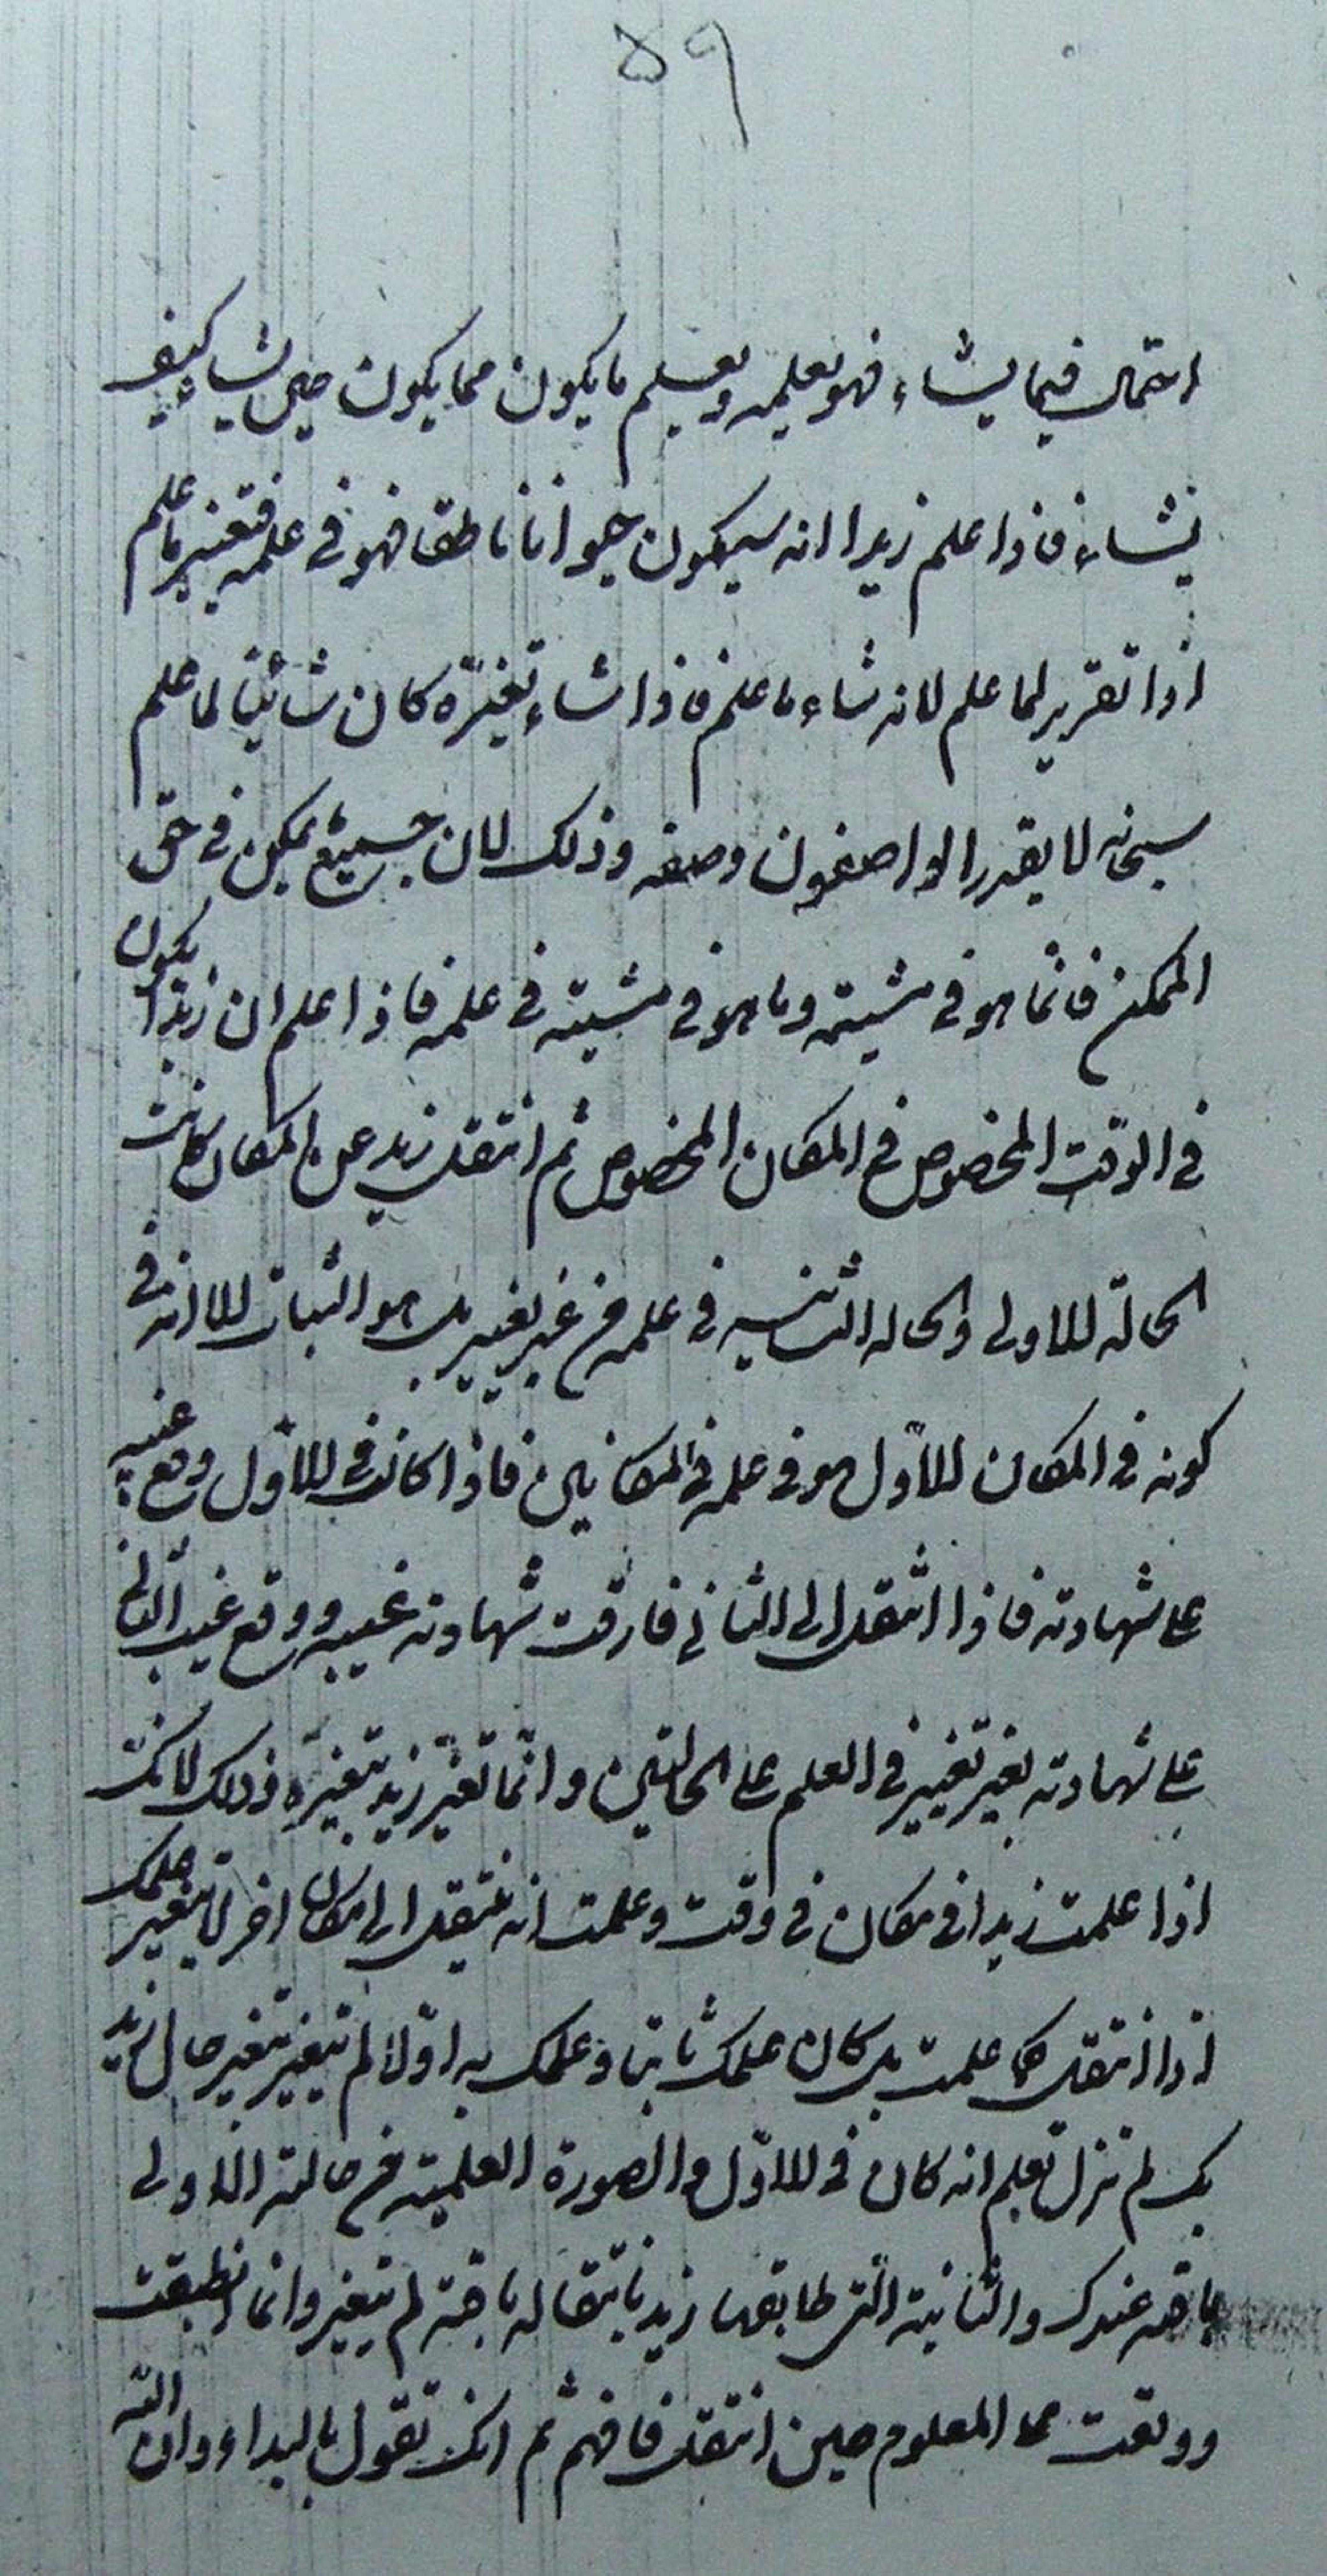 ٥٩
احتمال فيما يشاء فهو يعلمه ويعلم ما يكون مما يكون حين يشاء كيف
يشاء فاذا علم زيدا انه سيكون حيوانا ناطقا فهو في علمه فتغيير ما علم
اذا تقرير لما علم لانه شاء ما علم فاذا شاء تغيّره كان شائيا لما علم
سبحانه لا يقدر الواصفون وصفه وذلك لان جميع يمكن في حق
الممكن فانما هو في مشيته وما هو في مشيته في علمه فاذا علم ان زيدا يكون
في الوقت المخصوص في المكان المخصوص ثم انتقل زيد عن المكان كانت
الحالة الاولى والحاله الثانيه في علمه من غير تغيير بل هو الثبات الا انه في
كونه في المكان الاول هو في علمه في المكانين فاذا كان في الاول وقع غيبه
على شهادته فاذا انتقل الى الثاني فارقت شهادته غيبه ووقع غيب الثاني
على شهادته بغير تغيير في العلم على الحالتين وانما تغيّر زيد بتغيره وذلك لانك
اذا علمت زيدا في مكان في وقت وعلمت انه ينتقل الى مكان اخر لا يتغير علمك
اذا انتقل كما علمت بل كان علمك ثابتا وعلمك به اولا لم يتغير بتغير حال زيد
بل لم تزل تعلم انه كان في الاول والصورة العلمية من حالته الاولى
باقيه عندك والثانية التي طابقها زيد بانتقاله باقية لم يتغير وانما انطبقت
ووقعت على المعلوم حين انتقل فافهم ثم انك تقول بالبداء وان الله